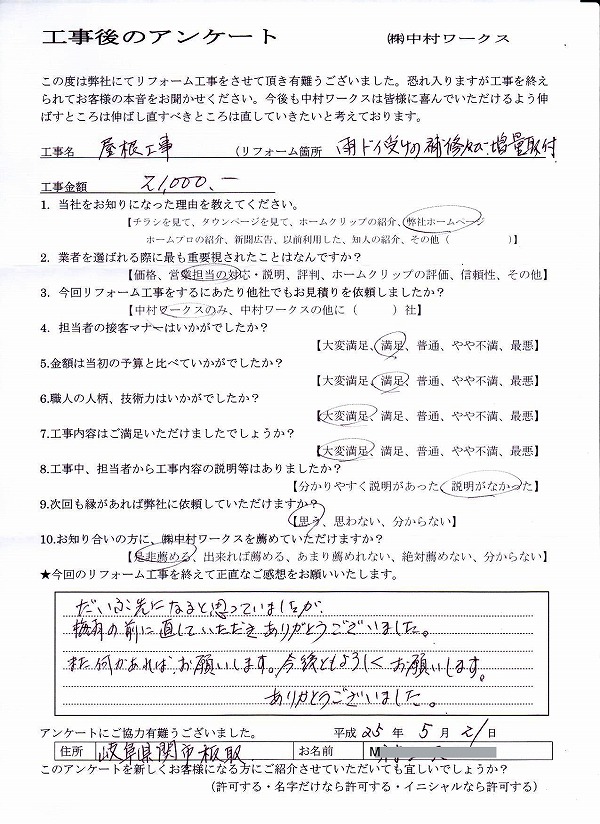 工事後のアンケート ㈱中村ワークス
この度は弊社にてリフォーム工事をさせて頂き有難うございました。恐れ入りますが工事を終え
られてお客様の本音をお聞かせください。今後も中村ワークスは皆様に喜んでいただけるよう伸
ばすところは伸ばし直すべきところは直していきたいと考えております。
工事名 屋根工事 (リフォーム箇所 雨ドイ受けの補修及び増量取付
工事金額 21,000.-
1. 当社をお知りになった理由を教えてください。
【チラシを見て、タウンページを見て、ホームクリップの紹介、弊社ホームページ
ホームプロの紹介、新聞広告、以前利用した、知人の紹介、その他（ ）】
2. 業者を選ばれる際に最も重要視されたことはなんですか？
【価格、営業担当の対応・説明、評判、ホームクリップの評価、信頼性、その他】
3. 今回リフォーム工事をするにあたり他社でもお見積りを依頼しましたか？
【中村ワークスのみ、中村ワークスの他に（ ）社】
4. 担当者の接客マナーはいかがでしたか？
【大変満足、満足、普通、やや不満、最悪】
5.金額は当初の予算と比べていかがでしたか？
【大変満足、満足、普通、やや不満、最悪】
6.職人の人柄、技術力はいかがでしたか？
【大変満足、満足、普通、やや不満、最悪】
7.工事内容はご満足いただけましたでしょうか？
【大変満足、満足、普通、やや不満、最悪】
8.工事中、担当者から工事内容の説明等はありましたか？
【分かりやすく説明があった、説明がなかった】
9.次回も縁があれば弊社に依頼していただけますか？
【思う、思わない、分からない】
10.お知り合いの方に、㈱中村ワークスを薦めていただけますか？
【是非薦める、出来れば薦める、あまり薦めれない、絶対薦めない、分からない】
★今回のリフォーム工事を終えて正直なご感想をお願いいたします。
だいぶ先になると思っていましたが、
梅雨の前に直していただきありがとうございました。
また何かあれば、お願いします。今後ともよろしくお願いします。
ありがとうございました。
アンケートにご協力有難うございました。 平成 25 年 5 月 21 日
住所 岐阜県関市板取 お名前 M
このアンケートを新しくお客様になる方にご紹介させていただいても宜しいでしょうか？
（許可する・名字だけなら許可する・イニシャルなら許可する）